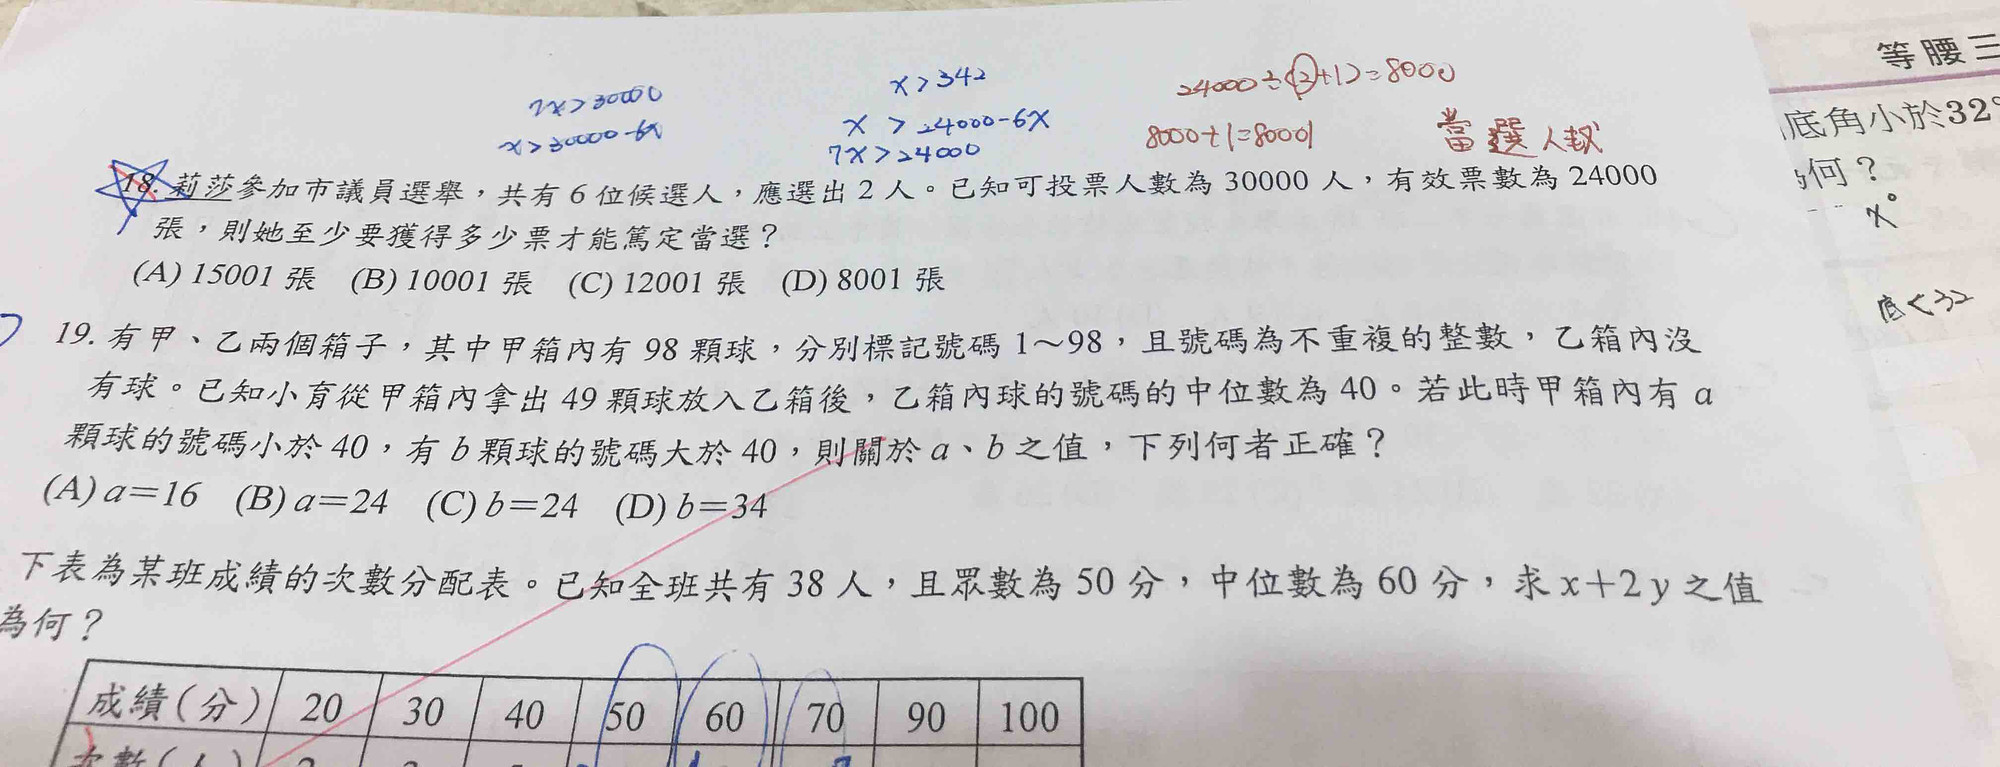 等腰三
底角小於32°
何？
x°
底<32
2x>30000
x>30000-6x
x>342
x >24000-6x
7x>24000
24000÷(2+1)=8000
8000+1=8001
當選人數
18. 莉莎參加市議員選舉，共有 6 位候選人，應選出 2 人。已知可投票人數為 30000 人，有效票數為 24000
張，則她至少要獲得多少票才能篤定當選？
(A) 15001 張 (B) 10001 張 (C) 12001 張 (D) 8001 張
19. 有甲、乙兩個箱子，其中甲箱內有 98 顆球，分別標記號碼 1～98，且號碼為不重複的整數，乙箱內沒
有球。已知小育從甲箱內拿出 49 顆球放入乙箱後，乙箱內球的號碼的中位數為 40。若此時甲箱內有 a
顆球的號碼小於 40，有 b 顆球的號碼大於 40，則關於 a、b 之值，下列何者正確？
(A) a＝16 (B) a＝24 (C) b＝24 (D) b＝34
下表為某班成績的次數分配表。已知全班共有 38 人，且眾數為 50 分，中位數為 60 分，求 x＋2y 之值
為何？
成績(分) 20 30 40 50 60 70 90 100
次數(人)